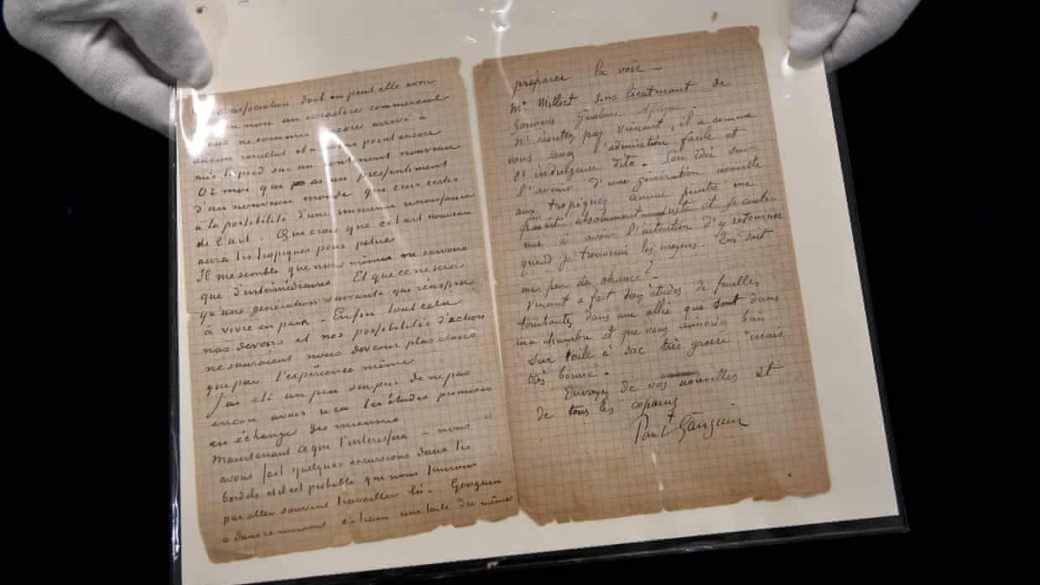 association doit on peut elle avoir
ou non un caractère commercial
nous ne sommes encore arrivé à
aucun résultat et n'avons point encore
mis le pied sur un continent nouveau
Or moi qui ai un présentiment
d'un nouveau monde, qui crois certes
à la possibilité d'une immense renaissance
de l'art. Qui crois que cet art nouveau
aura les tropiques pour patrie.
Il me semble que nous mêmes ne servons
que d'intermédiaires. Et que ce ne sera
qu'une génération suivante qui réussira
à vivre en paix. Enfin tout cela
nos devoirs et nos possibilités d'action
ne sauraient nous devenir plus clairs
que par l'expérience même
J'ai été un peu surpris de ne pas
encore avoir reçu les études promises
en échange des miennes
Maintenant ce qui t'intéressera – nous
avons fait quelques excursions dans les
bordels et il est probable que nous finirons
par aller souvent travailler là. Gauguin
a dans ce moment en train une toile du même
préparer la voie –
Mr Milliet sous lieutenant de
Zouaves Guelma Afrique!
N'écoutez pas Vincent, il a comme
vous savez l'admiration facile et
l'indulgence dito. Son idée sur
l'avenir d'une génération nouvelle
aux tropiques comme peintre me
paraît absolument juste et je continue
à avoir l'intention d'y retourner
quand je trouverai les moyens. Qui sait
un peu de chance?
Vincent a fait deux études de feuilles
tombantes dans une allée qui sont dans
ma chambre et que vous aimeriez bien
sur toile à sac très grosse mais
très bonne.
Envoyez de vos nouvelles et
de tous les copains
Paul Gauguin